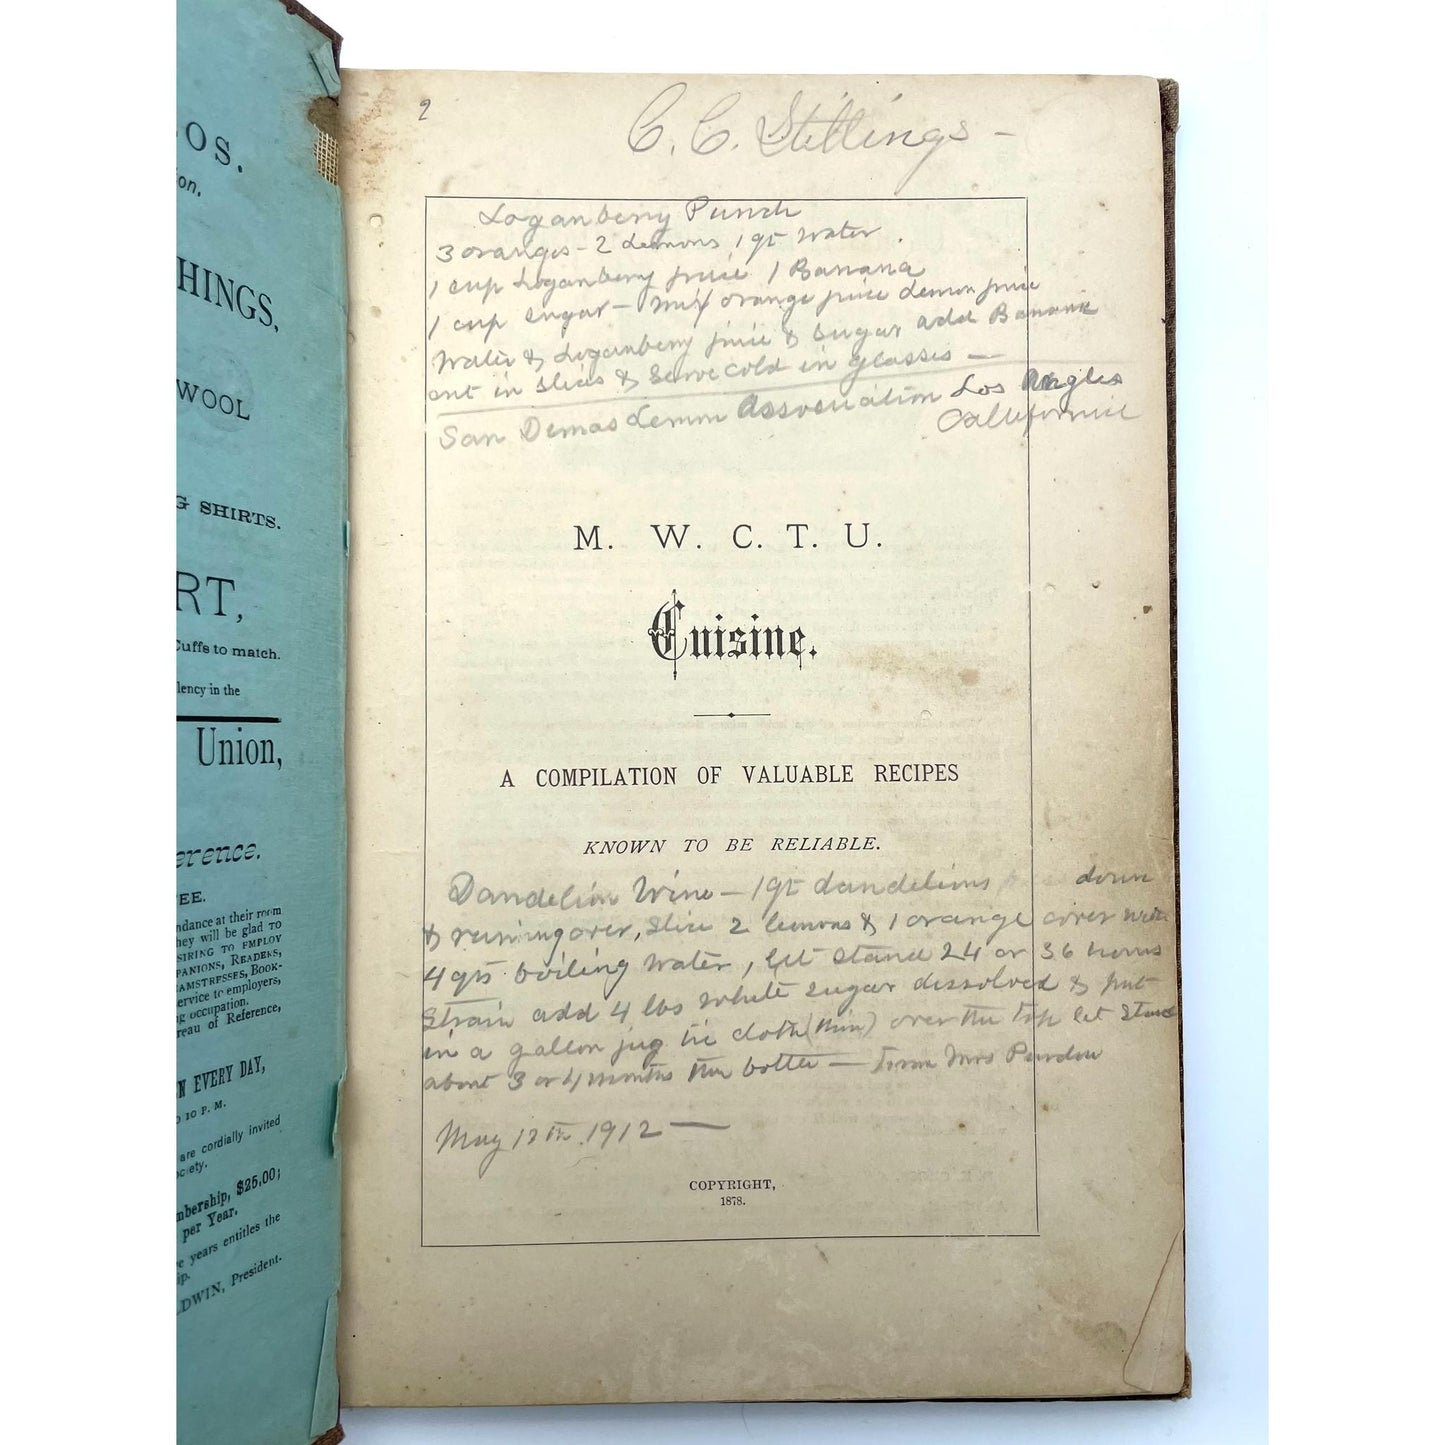 OS.
on.
HINGS,
WOOL
G SHIRTS.
RT,
Cuffs to match.
lency in the
Union,
erence.
EE.
ndance at their room
hey will be glad TO
SIRING TO EMPLOY
PANIONS, READERS,
EAMSTRESSES, BOOK-
ervice to employers,
ng occupation.
reau of Reference,
N EVERY DAY,
O 10 P. M.
are cordially invited
ociety.
mbership, $25.00;
per Year.
years entitles the
ip.
LDWIN, President.
2
C. C. Stillings –
Loganberry Punch
3 oranges – 2 Lemons 1 qt water.
1 cup Loganberry juice 1 Banana
1 cup sugar – mix orange juice Lemon juice
Water & Loganberry juice & sugar add Banana
cut in slices & Serve cold in glasses –
San Demas Lemon Assosciation Los Angles
California
M. W. C. T. U.
Cuisine.
A COMPILATION OF VALUABLE RECIPES
KNOWN TO BE RELIABLE.
Dandelion Wine – 1 qt dandelions down
& running over, Slice 2 lemons & 1 orange cover with
4 qts boiling water, let stand 24 or 36 hours
Strain add 4 lbs white sugar dissolved & put
in a gallon jug tie cloth (thin) over the top let stand
about 3 or 4 months then bottle – from Mrs Purdou
May 12th 1912 –
COPYRIGHT,
1878.